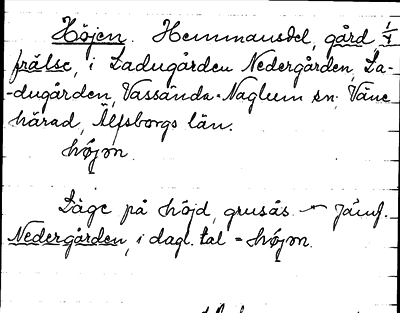 Höjen. Hemmansdel, gård 1/4
frälse, i Ladugården Nedergården, La-
-dugården, Vassända-Naglum sn; Väne
härad, Älfsborgs län.
højən
Läge på höjd, grusås. – Jämf.
Nedergården, i dagl. tal = højən.